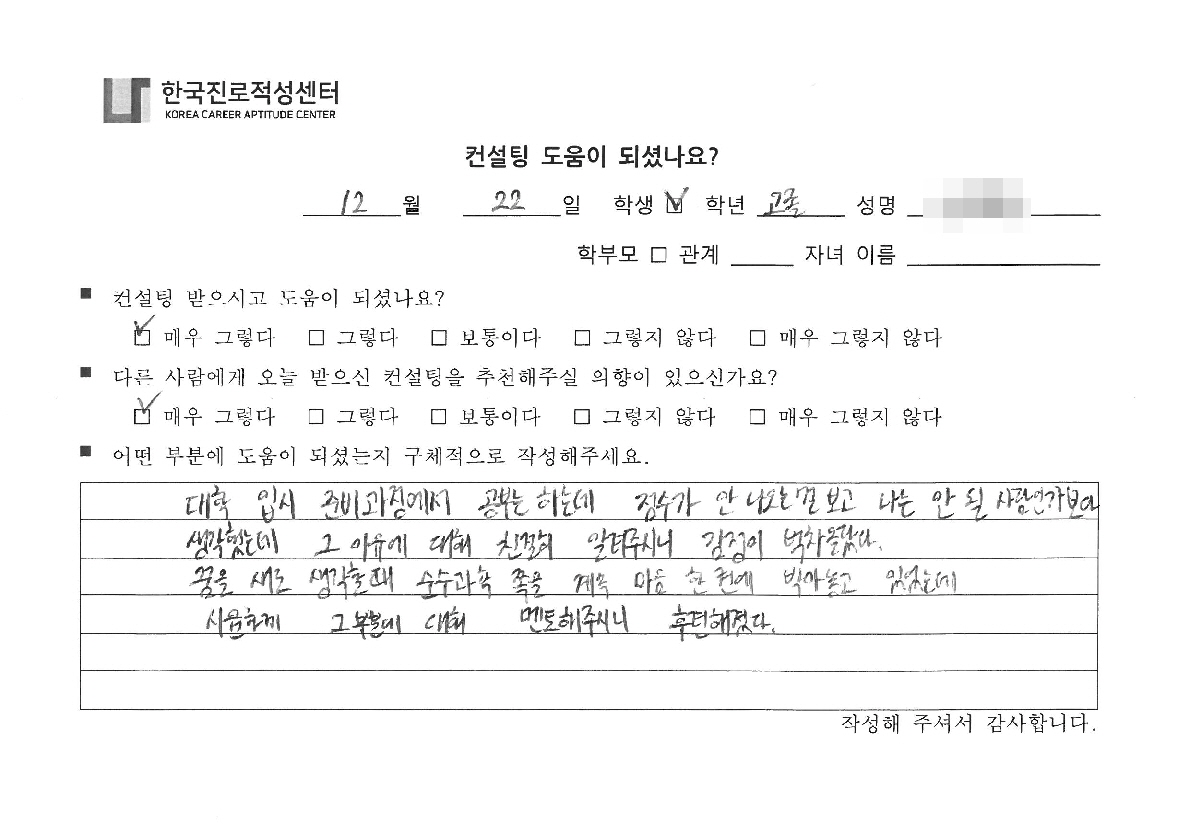 한국진로적성센터
KOREA CAREER APTITUDE CENTER
컨설팅 도움이 되셨나요?
12 월 22 일 학생 ☑ 학년 고졸 성명
학부모 □ 관계 자녀 이름
■ 컨설팅 받으시고 도움이 되셨나요?
☑ 매우 그렇다 □ 그렇다 □ 보통이다 □ 그렇지 않다 □ 매우 그렇지 않다
■ 다른 사람에게 오늘 받으신 컨설팅을 추천해주실 의향이 있으신가요?
☑ 매우 그렇다 □ 그렇다 □ 보통이다 □ 그렇지 않다 □ 매우 그렇지 않다
■ 어떤 부분에 도움이 되셨는지 구체적으로 작성해주세요.
대학 입시 준비과정에서 공부는 하는데 점수가 안 나오는걸 보고 나는 안 될 사람인가보다
생각했는데 그 이유에 대해 친절히 알려주시니 감정이 벅차올랐다.
꿈을 새로 생각할때 순수과학 쪽을 계속 마음 한 켠에 박아놓고 있었는데
시원하게 그 부분에 대해 멘토해주시니 후련해졌다.
작성해 주셔서 감사합니다.